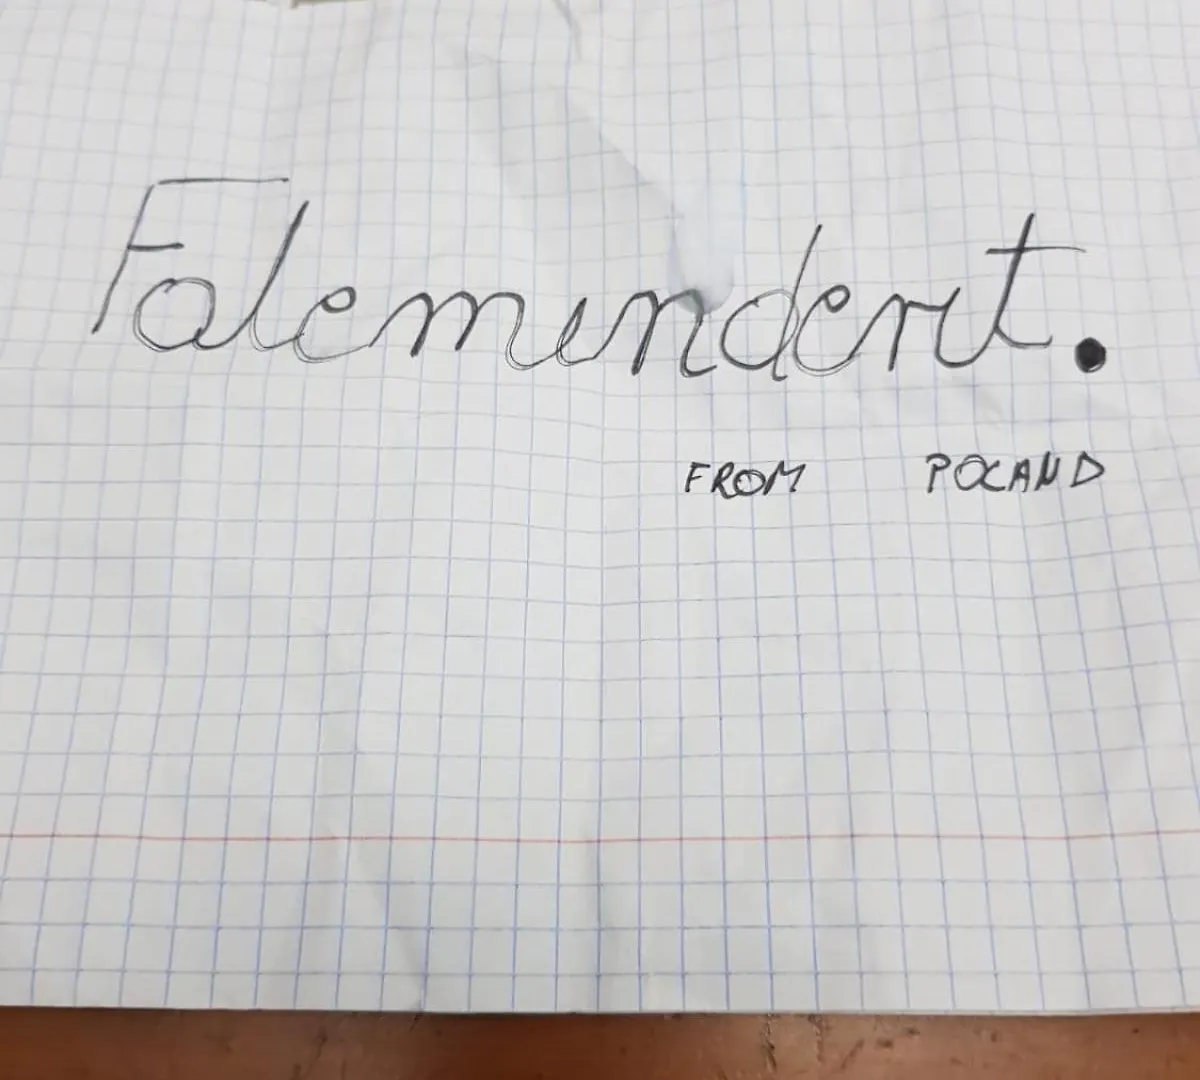 Falemenderit.
FROM POLAND